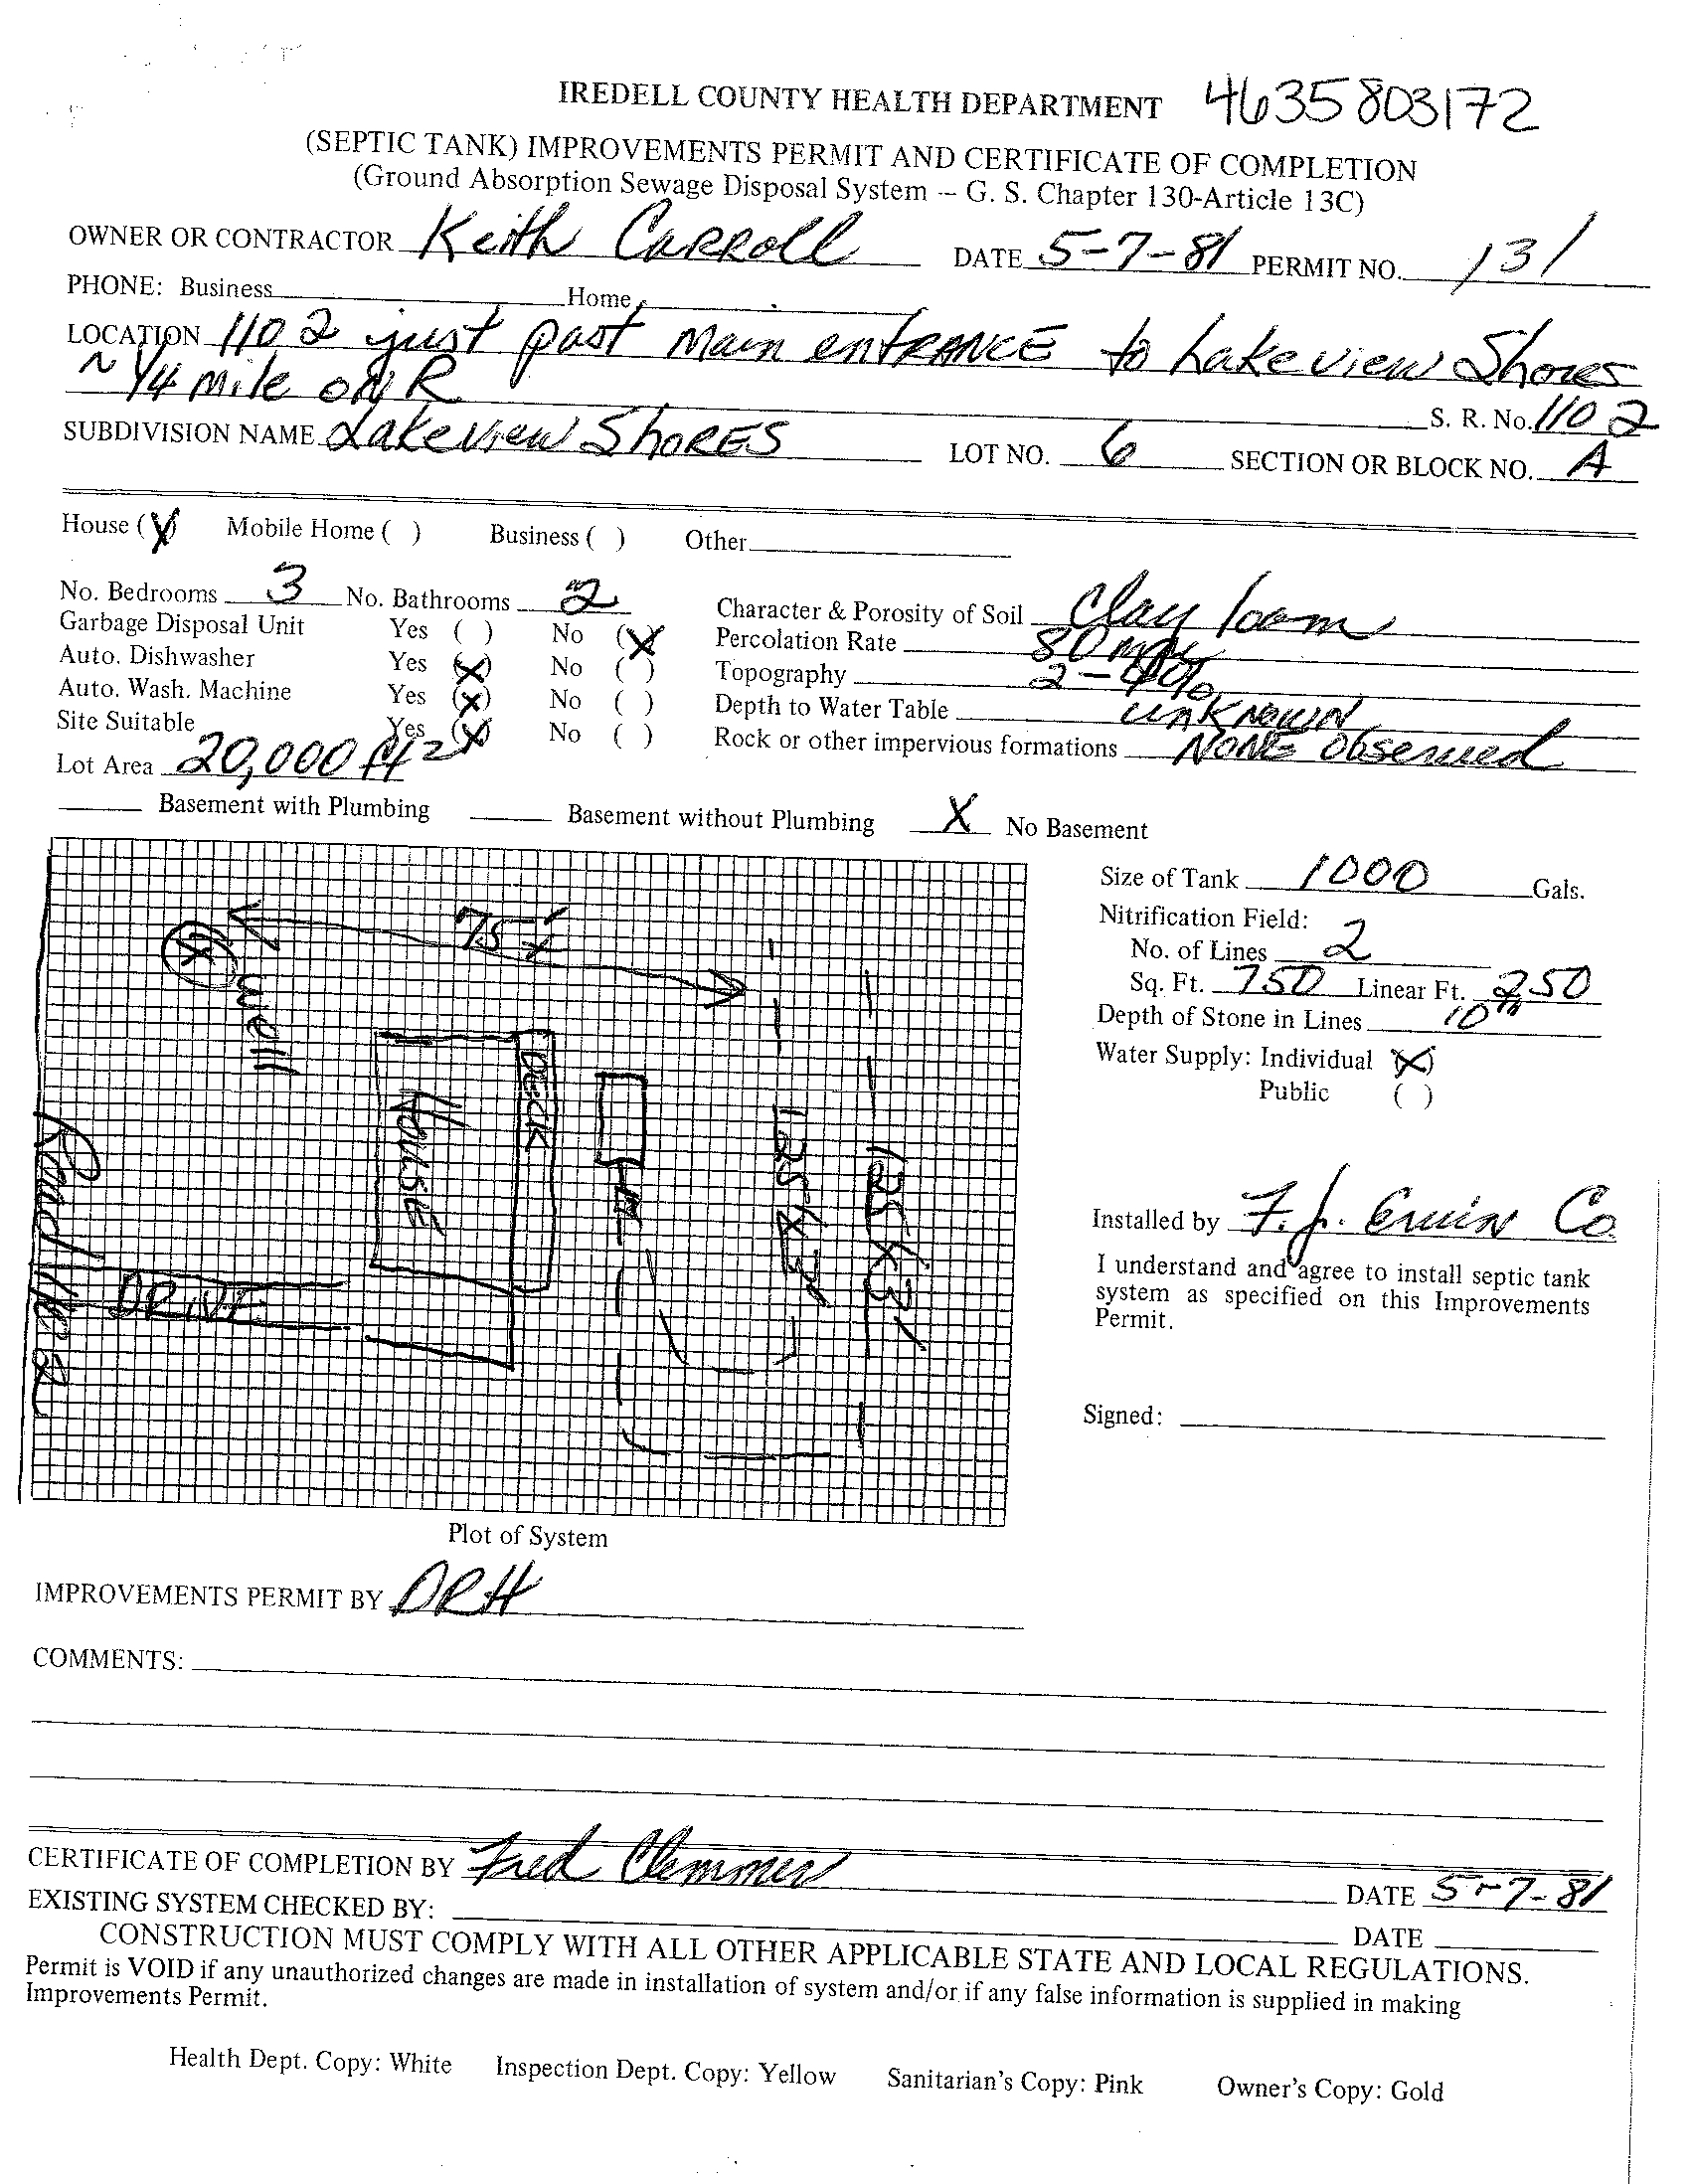 IREDELL COUNTY HEALTH DEPARTMENT 4635803172
(SEPTIC TANK) IMPROVEMENTS PERMIT AND CERTIFICATE OF COMPLETION
(Ground Absorption Sewage Disposal System -- G. S. Chapter 130-Article 13C)
OWNER OR CONTRACTOR Keith CARROLL DATE 5-7-81 PERMIT NO. 131
PHONE: Business Home
LOCATION 1102 just past Main entRANCE to Lakeview Shores
~ 1/4 mile on R
S. R. No. 1102
SUBDIVISION NAME Lakeview ShoRES LOT NO. 6 SECTION OR BLOCK NO. A
House (X) Mobile Home ( ) Business ( ) Other
No. Bedrooms 3 No. Bathrooms 2 Character & Porosity of Soil Clay loam
Garbage Disposal Unit Yes ( ) No (X) Percolation Rate 80
Auto. Dishwasher Yes (X) No ( ) Topography 2-4%
Auto. Wash. Machine Yes (X) No ( ) Depth to Water Table unknown
Site Suitable Yes (X) No ( ) Rock or other impervious formations NONE Observed
Lot Area 20,000 ft2
Basement with Plumbing Basement without Plumbing X No Basement
Size of Tank 1000 Gals.
Nitrification Field:
No. of Lines 2
Sq. Ft. 750 Linear Ft. 250
Depth of Stone in Lines 10"
Water Supply: Individual (X)
Public ( )
75'
Well
DECK
HOUSE
125'X3'
125'X3'
Road 1102
DRIVE
Installed by F. J. Erwin Co.
I understand and agree to install septic tank
system as specified on this Improvements
Permit.
Signed:
Plot of System
IMPROVEMENTS PERMIT BY DRH
COMMENTS:
CERTIFICATE OF COMPLETION BY Fred Clemmer DATE 5-7-81
EXISTING SYSTEM CHECKED BY: DATE
CONSTRUCTION MUST COMPLY WITH ALL OTHER APPLICABLE STATE AND LOCAL REGULATIONS.
Permit is VOID if any unauthorized changes are made in installation of system and/or if any false information is supplied in making
Improvements Permit.
Health Dept. Copy: White Inspection Dept. Copy: Yellow Sanitarian's Copy: Pink Owner's Copy: Gold